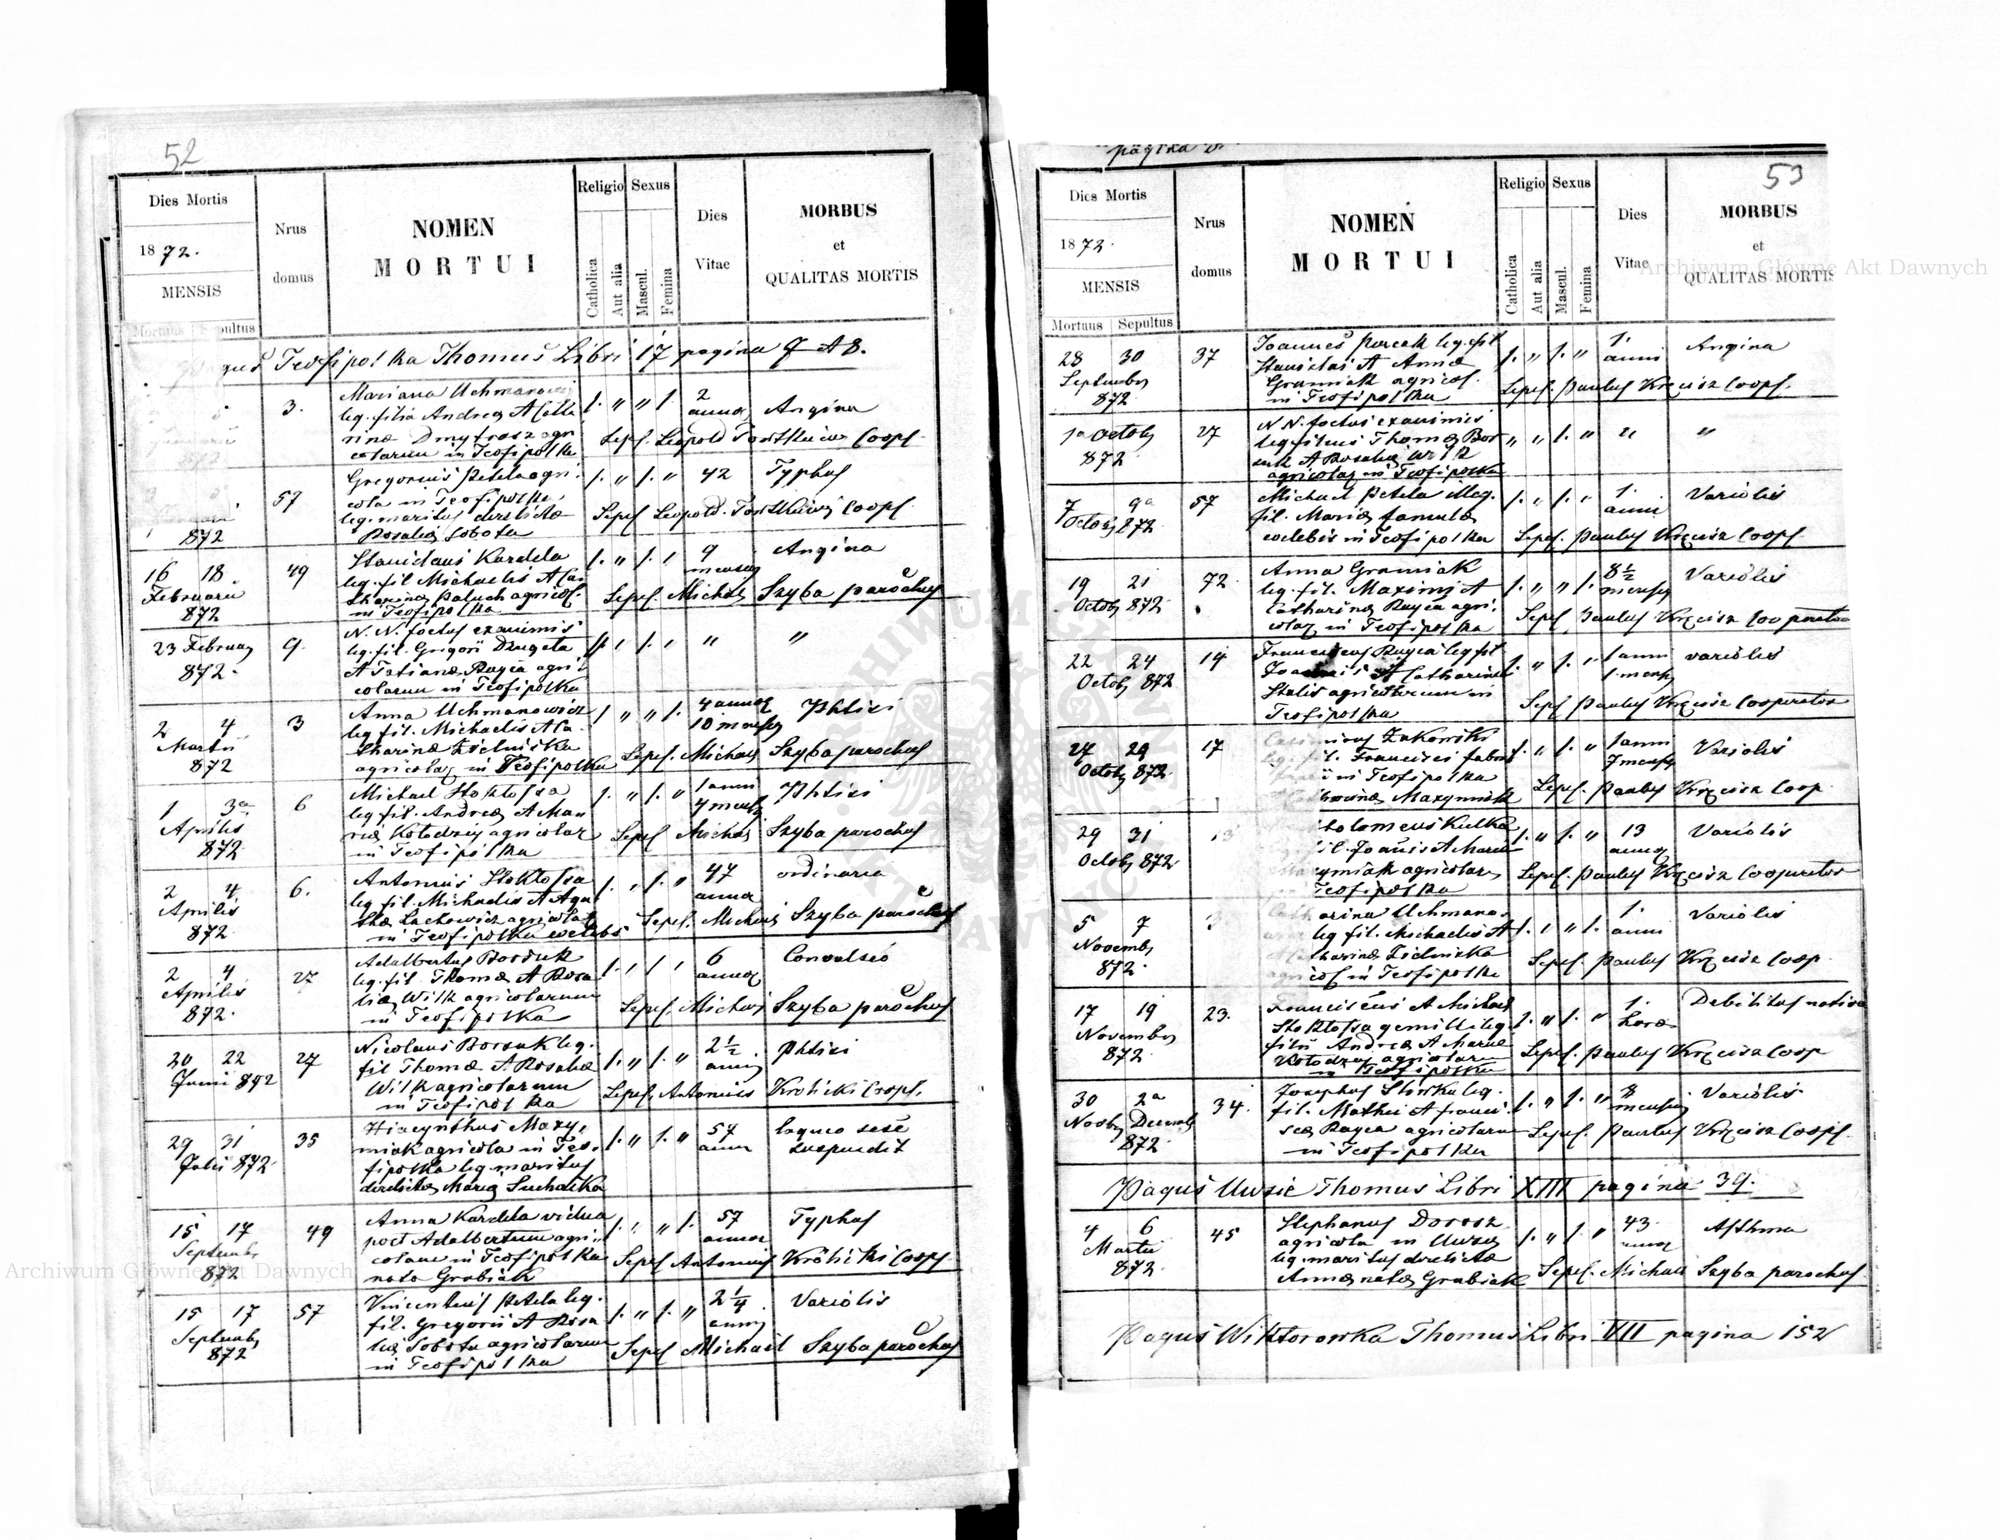 52
Dies Mortis
1872.
MENSIS
Mortuus Sepultus
Nrus
domus
NOMEN
MORTUI
Religio
Catholica
Aut alia
Sexus
Mascul.
Femina
Dies
Vitae
MORBUS
et
QUALITAS MORTIS
Teofipolka Thomus Libri 17 pagina
3.
Mariana Uchmanowicz
leg. filia Andreæ A Catha
rinæ Dmytrasz agri
colarum in Teofipolka
2
annor
Angina
Sepel. Leopold Coopt.
872
57
Gregorius Petela agri
cola in Teofipolka
leg. maritus derelictæ
Rosaliæ Sobota
42
Typhus
Sepel Leopold. Coopt.
16 18
Februarii
872
49
Stanislaus Kardela
leg. fil Michaelis A Ca
tharinæ Paluch agricol.
in Teofipolka
9
mensis
Angina
Sepel. Michael Szyba parochus
23 Februar
872.
9.
N. N. foetus exanimis
leg. fil. Grigorii Drugeta
A Tatianæ Rayca agri
colarum in Teofipolka
2 4
Martii
872
3
Anna Uchmanowicz
leg fil. Michaelis A Ca
tharinæ Zielinska
agricolar in Teofipolka
4 annor
10 mensis
Phtisi
Sepel. Michael Szyba parochus
1 3a
Aprilis
872
6
Michael Stoktosa
leg fil. Andreæ A Ma
riæ Kolodziej agricolar
in Teofipolka
1 anni
7 mensis
Phtisi
Sepel Michael Szyba parochus
2 4.
Aprilis
872
6.
Antonius Stoktosa
leg fil. Michaelis A Aga
thæ Lachowicz agricolar
in Teofipolka coelebs
47
annor
ordinaria
Sepel. Michael Szyba parochus
2 4
Aprilis
872.
27
Adalbertus Borsuk
leg. fil Thomæ A Rosa
liæ Wilk agricolarum
in Teofipolka
6
annor
Convulsio
Sepel. Michael Szyba parochus
20 22
Junii 872
27
Nicolaus Borsuk leg.
fil Thomæ A Rosaliæ
Wilk agricolarum
in Teofipolka
2 1/2
anni
Phtisi
Sepel. Antonius Krolicki Coopt.
29 31
Julii 872
35
Hiacynthus Maxy
miak agricola in Teo
fipolka leg. maritus
derelictæ Mariæ Suchacka
54
anni
laqueo sese
suspendit
15 17
Septembr
872
49
Anna Kardela vidua
post Adalbertum agri
colam in Teofipolka
nata Grabiak
57
annor
Typhus
Sepel Antonius Krolicki Coopt
15 17
Septembr
872
57
Vincentius Petela leg.
fil. Gregorii A Rosa
liæ Sobota agricolarum
in Teofipolka
2 1/4
anni
Variolis
Sepel Michael Szyba parochus
pagina
53
Dies Mortis
1872.
MENSIS
Mortuus Sepultus
Nrus
domus
NOMEN
MORTUI
Religio
Catholica
Aut alia
Sexus
Mascul.
Femina
Dies
Vitae
MORBUS
et
QUALITAS MORTIS
28 30
Septembr
872
37
Joannes leg. fil
Stanislai A Annæ
Graniak agricol.
in Teofipolka
1.
anni
Angina
Sepel. Paulus Coopt.
1a Octobr
872
27
N. N. foetus exanimis
leg filius Thomæ Bor
suk A Rosaliæ Wilk
agricolar in Teofipolka
7 9a
Octobr 872
57
Michael Petela illeg.
fil. Mariæ famulæ
coelebis in Teofipolka
1.
anni
Variolis
Sepel. Paulus Coopt.
19 21
Octobr 872
72.
Anna Graniak
leg. fil. Maximi A
Catharinæ Rayca agri
colar in Teofipolka
8 1/2
mensis
Variolis
Sepel Paulus Cooperator
22 24
Octobr 872
14
Franciscus Rayca leg fil
Joannis A Catharinæ
agricolarum in
Teofipolka
1 anni
1 mensis
variolis
Sepel Paulus Cooperator
27 29
Octobr 872
17
Casimirus Zukowski
leg. fil. Francisci
in Teofipolka
Maxymiak
1 anni
7 mensis
Variolis
Sepel. Paulus Coop.
29 31
Octobr 872
Bartholomeus Kulka
leg. fil. Joannis A Mariæ
Maxymiak agricolar
in Teofipolka
13
annor
Variolis
Sepel. Paulus Cooperator
5 7
Novembr
872.
Catharina Uchmano
wicz leg fil. Michaelis A
Catharinæ Zielinska
agricol in Teofipolka
1.
anni
Variolis
Sepel. Paulus Coop.
17 19
Novembr
872
23.
Franciscus A Michael
Stoktosa gemelli leg
filii Andreæ A Mariæ
Kolodziej agricolarum
in Teofipolka
1.
horæ
Debilitas nativa
Sepel. Paulus Coop
30 2a
Novbr Decembr
872
34.
Josephus leg.
fil. Mathei A Franci
scæ Rayca agricolarum
in Teofipolka
mensis
Variolis
Sepel. Paulus Coopt.
Pagus Uwsie Thomus Libri XIII pagina 39.
4 6
Martii
872.
45
Stephanus Dorosz
agricola in Uwsie
leg. maritus derelictæ
Annæ natæ Grabiak
43.
annor
Asthma
Sepel. Michael Szyba parochus
Pagus Wiktorowka Thomus Libri VIII pagina 152
Archiwum Główne Akt Dawnych
Archiwum Główne Akt Dawnych
ARCHIWUM GŁÓWNE AKT DAWNYCH